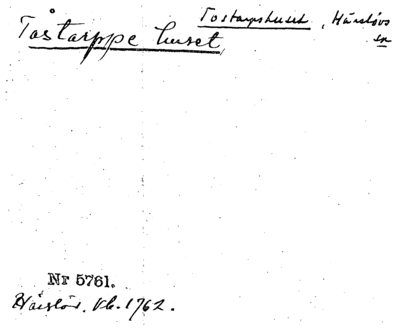 Tostarpshuset, Härslövs
sn
Tåstarppe huset
Nr 5761.
Härslöv. Vb. 1762.